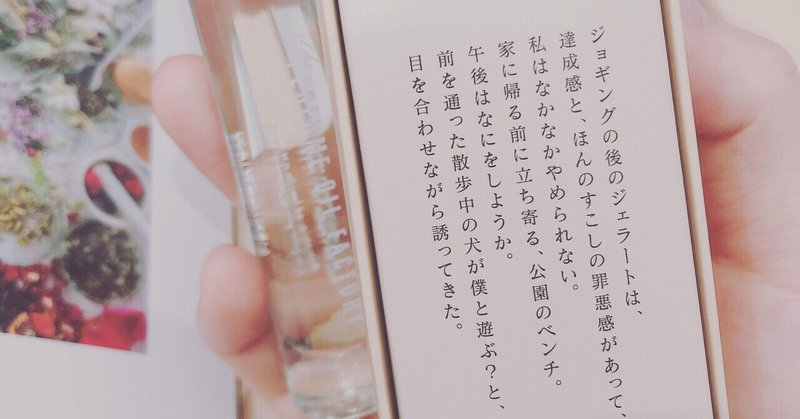 ジョギングの後のジェラートは、
達成感と、ほんのすこしの罪悪感があって、
私はなかなかやめられない。
家に帰る前に立ち寄る、公園のベンチ。
午後はなにをしようか。
前を通った散歩中の犬が僕と遊ぶ?と、
目を合わせながら誘ってきた。